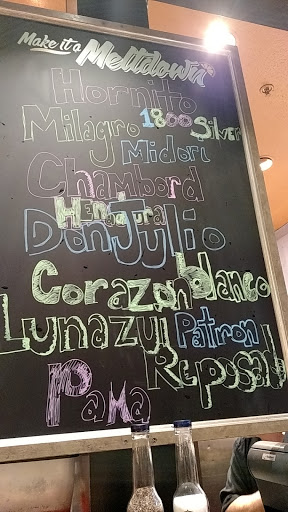 Make it a Meltdown
Hornito
Milagro 1800 Silver
Midori
Chambord
Herradura
Don Julio
Corazon blanco
Lunazul Patron
Reposado
Pama